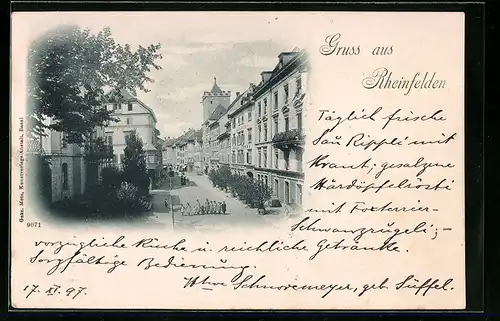 Gruss aus
Rheinfelden
Täglich frische
Sau Rippli mit
Kraut; gesalzene
Härdöpfelrösti
mit Foxterrier-
Schwanzzrügeli;-
vorzügliche Küche u. reichliche Getränke.
Sorgfältige Bedienung
Wtwe Schnorremeyer, geb. Süffel.
17. XI. 97.
Gebr. Metz, Kunstverlags-Anstalt, Basel.
9071